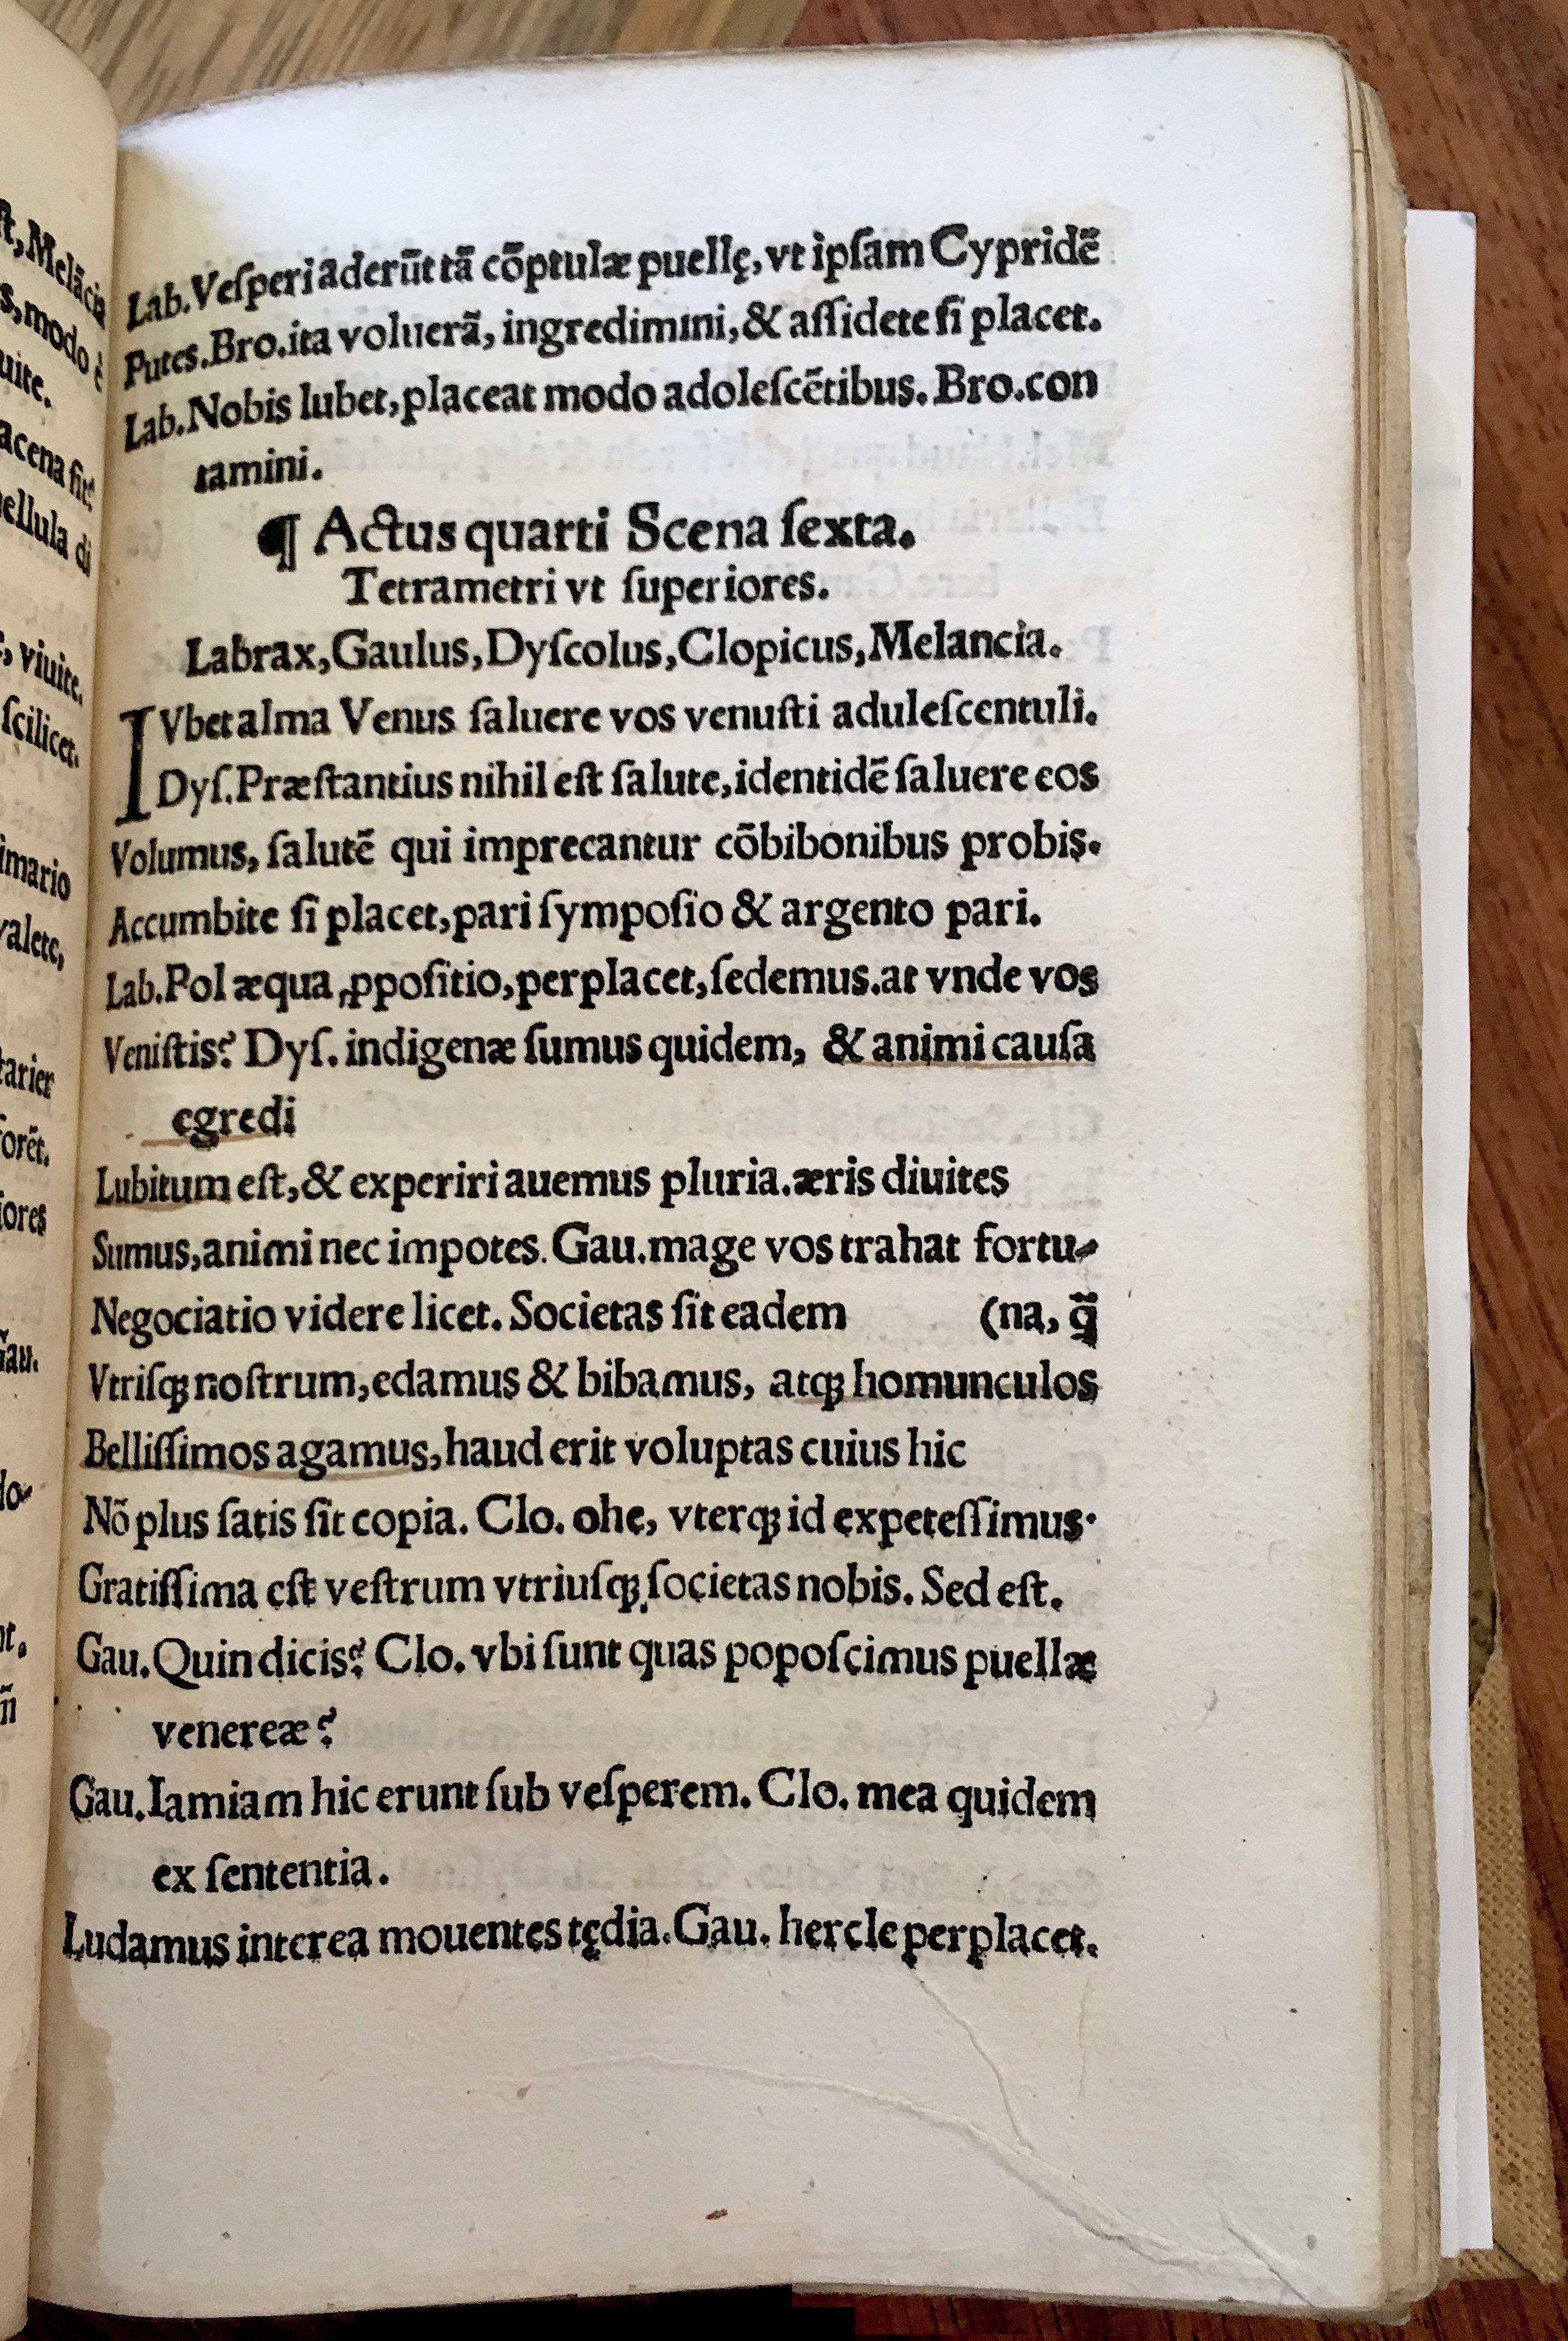 ſt, Melāciā
s, modo
uite.
acena ſit?
ellula di
, viuite.
ſcilicet.
imario
valete,
tarier
forēt.
iores
Gau.
lo-
nt.
Lab. Veſperi aderūt tā cōptulæ puellę, vt ipſam Cypridē
Putes. Bro. ita voluerā, ingredimini, & aſſidete ſi placet.
Lab. Nobis lubet, placeat modo adoleſcētibus. Bro. con
tamini.
¶ Actus quarti Scena ſexta.
Tetrametri vt ſuperiores.
Labrax, Gaulus, Dyſcolus, Clopicus, Melancia.
IVbet alma Venus ſaluere vos venuſti aduleſcentuli.
Dyſ. Præſtantius nihil eſt ſalute, identidē ſaluere eos
Volumus, ſalutē qui imprecantur cōbibonibus probis.
Accumbite ſi placet, pari ſympoſio & argento pari.
Lab. Pol æqua ꝓpoſitio, perplacet, ſedemus. at vnde vos
Veniſtis? Dyſ. indigenæ ſumus quidem, & animi cauſa
egredi
Lubitum eſt, & experiri auemus pluria. æris diuites
Sumus, animi nec impotes. Gau. mage vos trahat fortu-
Negociatio videre licet. Societas ſit eadem (na, q̄
Vtriſqꝫ noſtrum, edamus & bibamus, atqꝫ homunculos
Belliſſimos agamus, haud erit voluptas cuius hic
Nō plus ſatis ſit copia. Clo. ohe, vterqꝫ id expeteſſimus.
Gratiſſima eſt veſtrum vtriuſqꝫ ſocietas nobis. Sed eſt.
Gau. Quin dicis? Clo. vbi ſunt quas popoſcimus puellæ
venereæ?
Gau. Iamiam hic erunt ſub veſperem. Clo. mea quidem
ex ſententia.
Ludamus interea mouentes tędia. Gau. hercle perplacet.